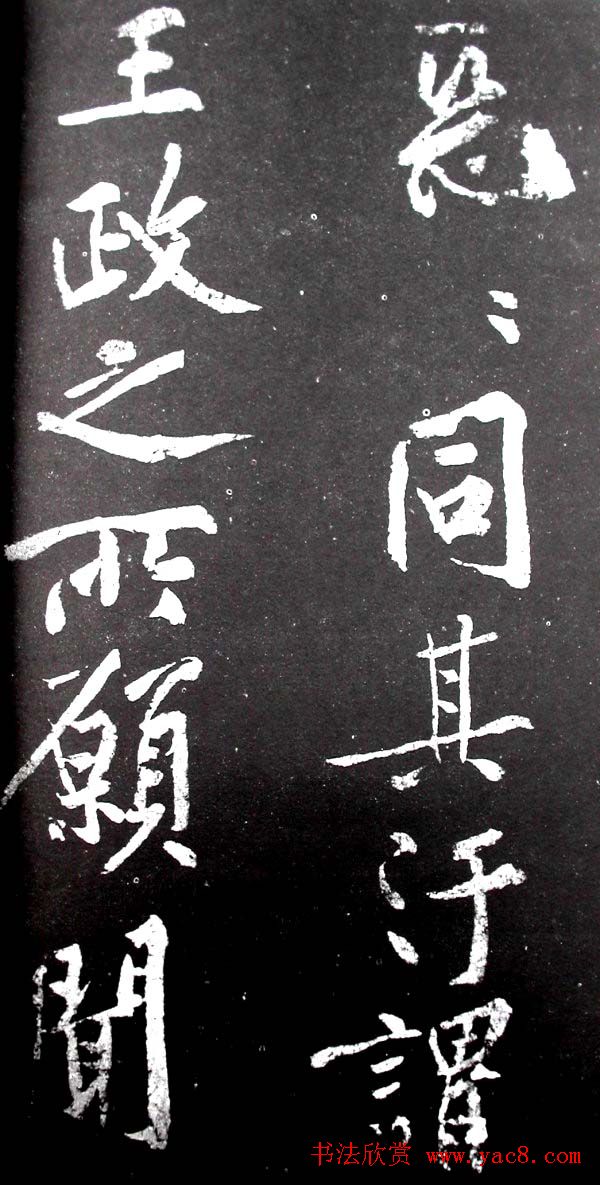 惡〻同其汙謂
王政之所願聞
书法欣赏 www.yac8.com